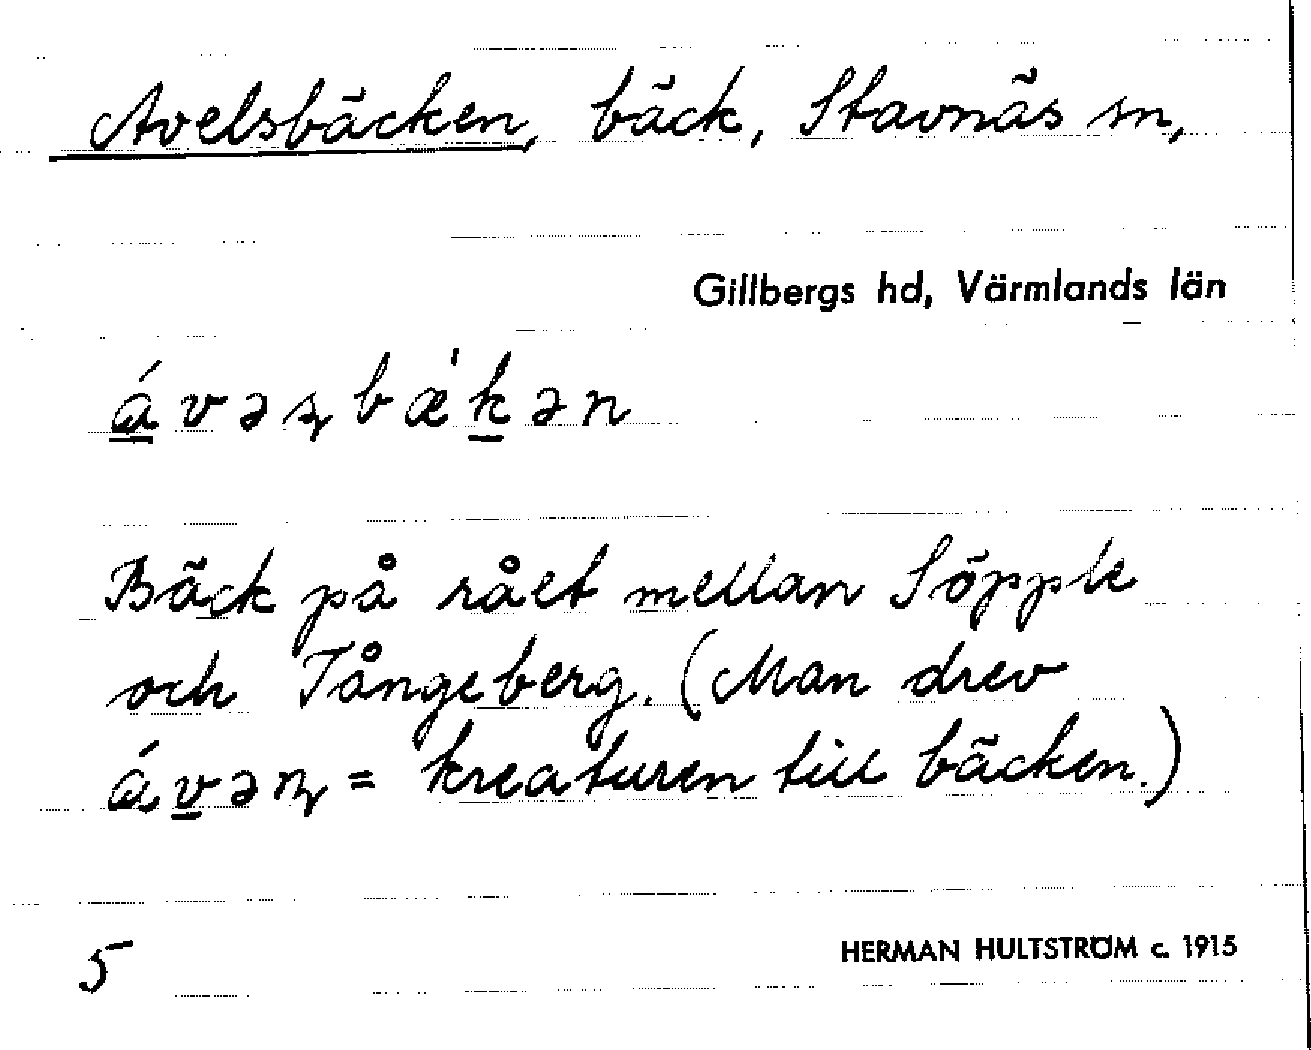 Avelsbäcken, bäck, Stavnäs sn,
Gillbergs hd, Värmlands län
ávəʂbæ'kən
Bäck på rået mellan Söpple
och Tångeberg. (Man drev
ávəɳ = kreaturen till bäcken.)
5
HERMAN HULTSTRÖM c. 1915